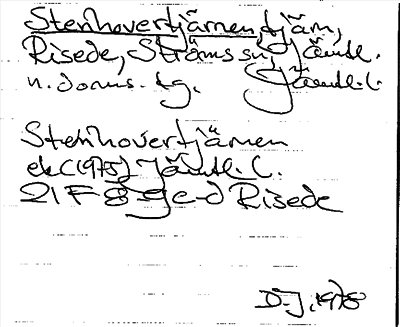 Stenhovertjärnen, tjärn,
Risede, Ströms sn, Jämtl.
n. doms. tg. Jämtl. l.
Stenhovertjärnen
ek (1975) Jämtl. l.
21 F 8 g e-d Risede
D.J. 1978